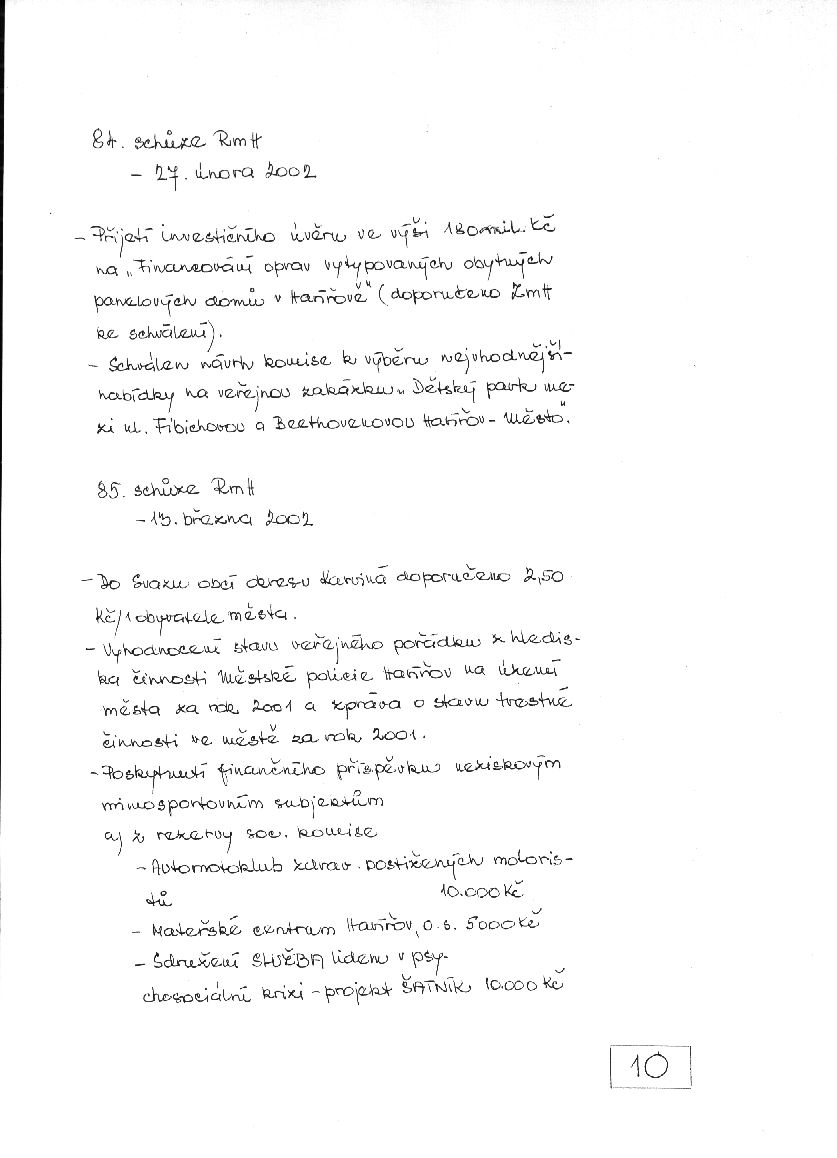 84. schůze RmH
- 27. února 2002
- Přijetí investičního úvěru ve výši 180 mil. Kč
na „Financování oprav vytypovaných obytných
panelových domů v Havířově“ (doporučeno ZmH
ke schválení).
- Schválen návrh komise k výběru nejvhodnější
nabídky na veřejnou zakázku „Dětský park me-
zi ul. Fibichovou a Beethovenovou Havířov - Město“.
85. schůze RmH
- 13. března 2002
- Do Svazu obcí okresu Karviná doporučeno 2,50
Kč/1 obyvatele města.
- Vyhodnocení stavu veřejného pořádku z hledis-
ka činnosti Městské policie Havířov na území
města za rok 2001 a zpráva o stavu trestné
činnosti ve městě za rok 2001.
- Poskytnutí finančního příspěvku neziskovým
mimosportovním subjektům
a) z rezervy soc. komise
- Automotoklub zdrav. postižených motoris-
tů 10.000 Kč
- Mateřské centrum Havířov, o.s. 5000 Kč
- Sdružení SLUŽBA lidem v psy-
chosociální krizi - projekt ŠATNÍK 10.000 Kč
10